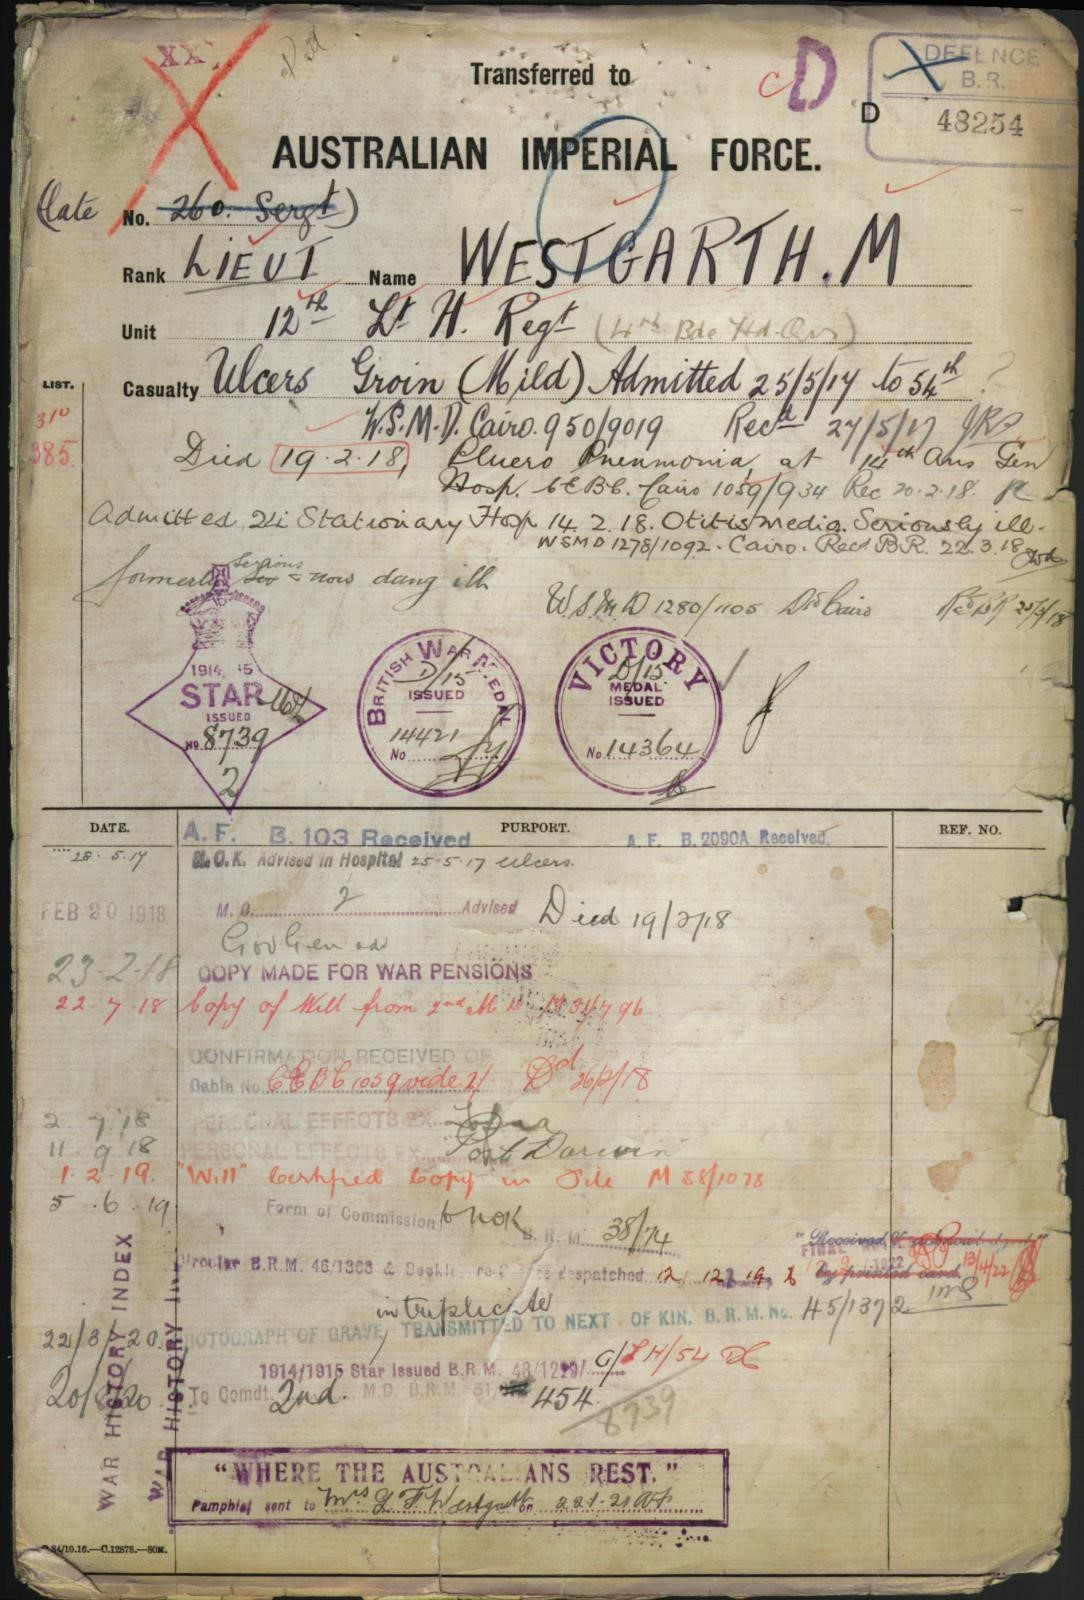 XX
Transferred to
C D
DEFENCE
B.R.
D 48254
AUSTRALIAN IMPERIAL FORCE.
(late No. 260. Sergt)
Rank LIEUT Name WESTGARTH. M
Unit 12th Lt H. Regt (4th Bde Hd. Qrs)
Casualty Ulcers Groin (Mild) Admitted 25/5/17 to 54th ?
LIST.
310
W.S.M.D. Cairo. 950/9019 Recd 27/5/17
385
Died 19.2.18, Pluero Pneumonia, at 14th Aus Gen
Hosp. CEBC. Cairo 1059/934 Rec 20.2.18.
Admitted 24 Stationary Hosp 14.2.18. Otitis media. Seriously ill.
WSMD 1278/1092. Cairo. Recd B.R. 22.3.18
formerly Serious now dang ill
W.S.M.D 1280/1105 Cairo
1914-15
STAR
ISSUED
No 8739
2
BRITISH WAR MEDAL
D/15
ISSUED
14421
No
VICTORY
D/15
MEDAL
ISSUED
No 14364
DATE. PURPORT. REF. NO.
A. F. B. 103 Received A. F. B. 2090A Received.
28.5.17 N.O.K. Advised in Hospital 25.5.17 Ulcers.
FEB 20 1918 M. O. 2 Advised Died 19/2/18
Gov Gen adv
23-2-18 COPY MADE FOR WAR PENSIONS
22.7.18 Copy of Will from 2nd
CONFIRMATION RECEIVED OF
Cable No. CEBC 1059 vide 21 26/2/18
2 7 18 PERSONAL EFFECTS EX.
11 9 18 PERSONAL EFFECTS EX. Port Darwin
1.2.19. "Will" Certified Copy in File M 38/1078
5.6.19 Form of Commission to NOK
B. R. M. 38/74
"Received
by printed card.
13/4/22
Circular B.R.M. 46/1368 & Booklet despatched 12 12 19
in triplicate
22/3/20 PHOTOGRAPH OF GRAVE, TRANSMITTED TO NEXT OF KIN. B. R. M. No. 45/1372
1914/1915 Star Issued B.R.M. 48/1229/ LH/54
20/8/20 To Comdt. 2nd. M.D. B.R.M. 51/ 454
8739
WAR HISTORY INDEX
WAR HISTORY
"WHERE THE AUSTRALIANS REST."
Pamphlet sent to Mrs G F Westgarth on 22.1.21
84/10.16.—C.12878.—80M.